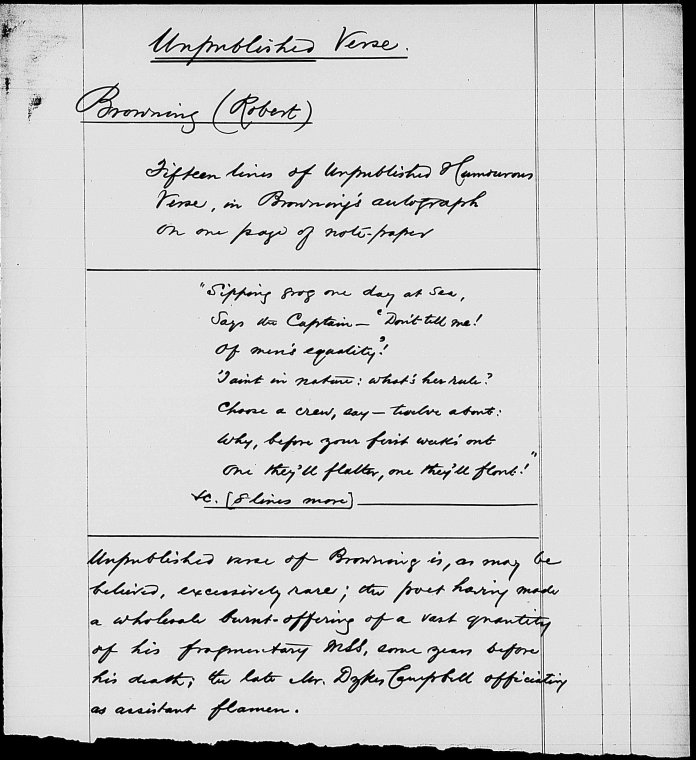 Unpublished Verse.
Browning (Robert)
Fifteen lines of Unpublished Humourous
Verse, in Browning's autograph
on one page of note-paper
"Sipping grog one day at sea,
Says the Captain — "Don't tell me!
Of men's equality"!
'Taint in nature: what's her rule?
Choose a crew, say — twelve about:
Why, before your first week's out
One they'll flatter, one they'll flout!"
&c. [8 lines more]
Unpublished verse of Browning is, as may be
believed, excessively rare; the poet having made
a wholesale burnt-offering of a vast quantity
of his fragmentary MSS, some years before
his death; the late Mr. Dykes Campbell officiating
as assistant flamen.